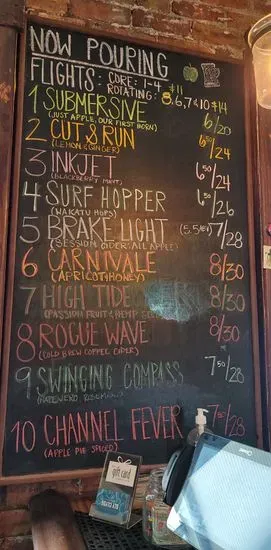 NOW POURING
FLIGHTS: CORE: 1-4 $11
ROTATING: 5,6,7&10 $14
1 SUBMERSIVE 6/20
(JUST APPLE, OUR FIRST BORN)
2 CUT & RUN 6.50/24
(LEMON & GINGER)
3 INKJET 6.50/24
(BLACKBERRY MINT)
4 SURF HOPPER 6.50/26
(WAKATU HOPS)
5 BRAKE LIGHT (5.5%) 7/28
(SESSION CIDER: ALL APPLE)
6 CARNIVALE 8/30
(APRICOT/HONEY)
7 HIGH TIDE 8/30
(PASSION FRUIT & HEMP
8 ROGUE WAVE 8/30
(COLD BREW COFFEE CIDER)
9 SWINGING COMPASS 7.50/28
10 CHANNEL FEVER 7.50/28
(APPLE PIE SPICED)
gift card